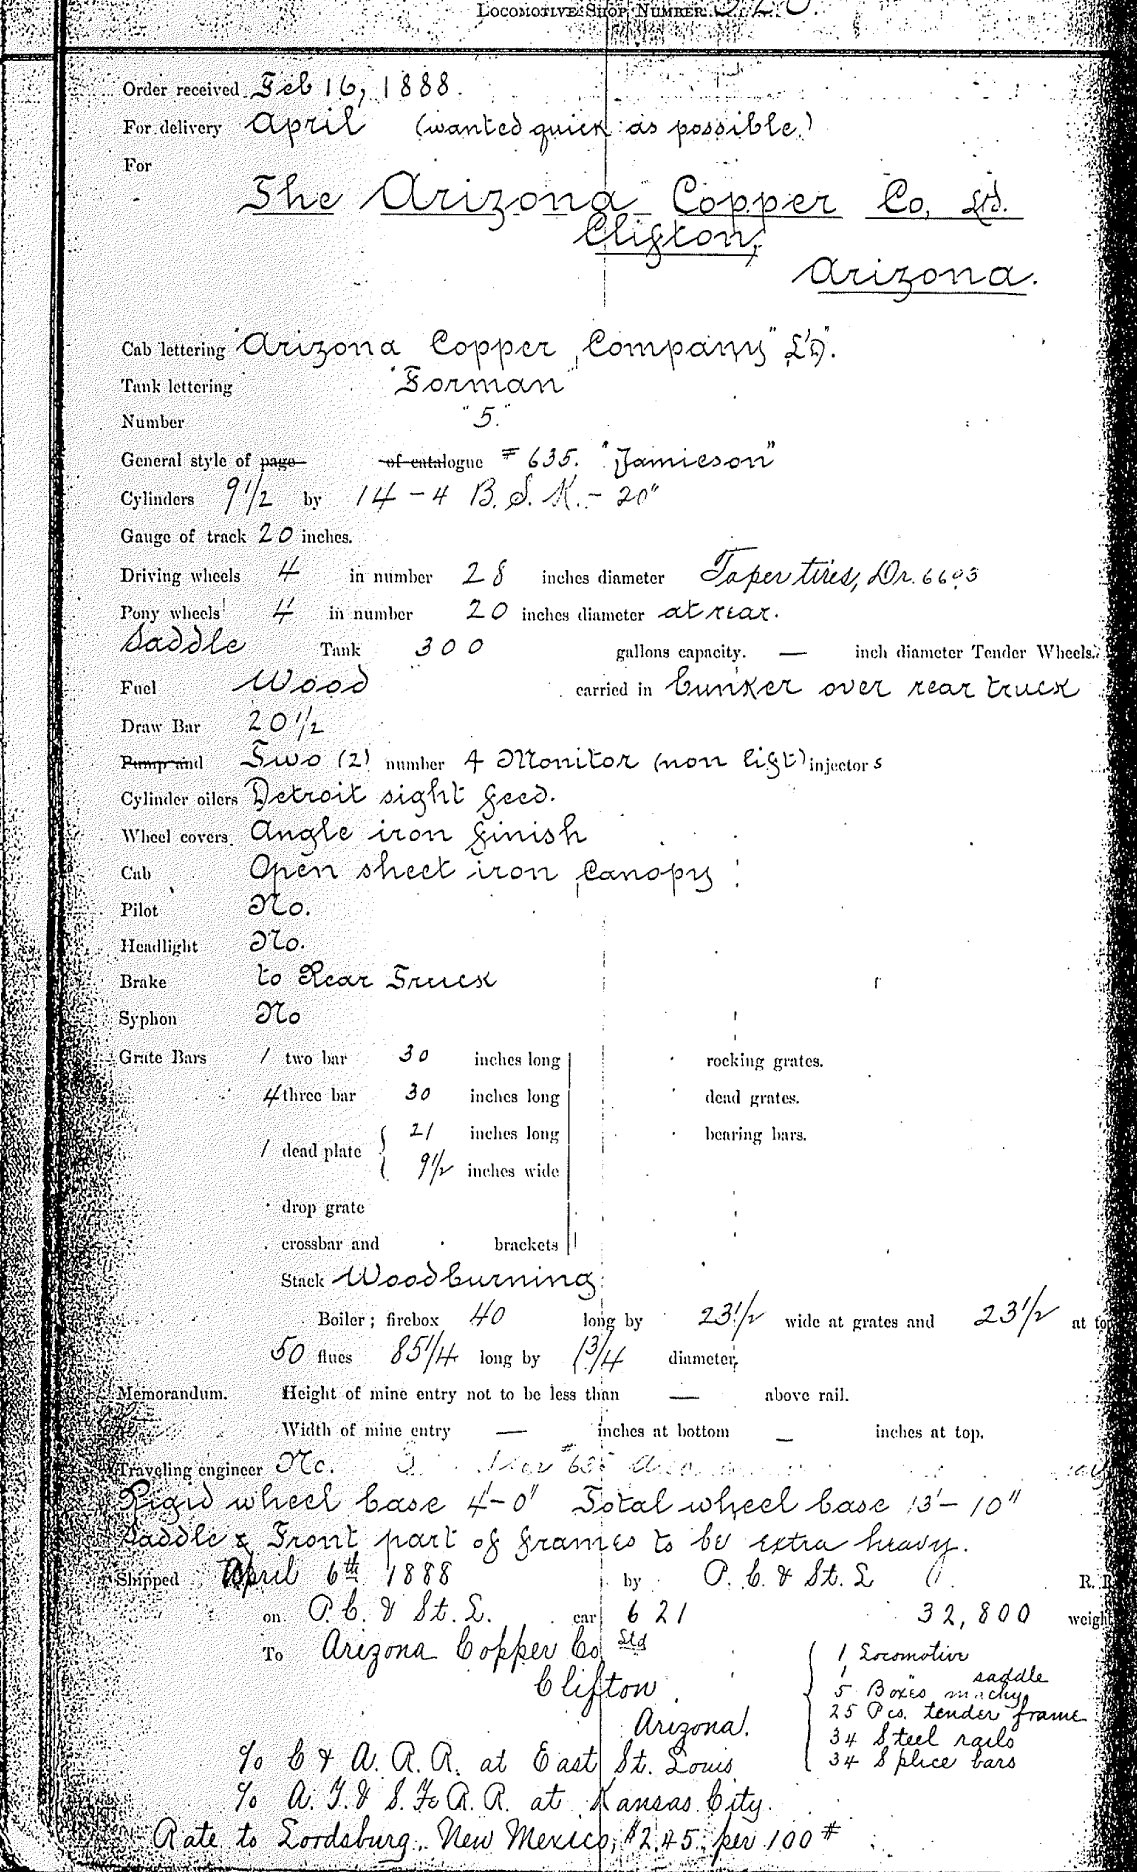 LOCOMOTIVE SHOP NUMBER
Order received Feb 16, 1888.
For delivery April (wanted quick as possible.)
For
The Arizona Copper Co, Ltd.
Clifton,
Arizona.
Cab lettering "Arizona Copper Company" L'd".
Tank lettering "Forman"
Number "5."
General style of page of catalogue # 635. "Jamieson"
Cylinders 9 1/2 by 14 - 4 B. S. K. - 20"
Gauge of track 20 inches.
Driving wheels 4 in number 28 inches diameter Taper tires, Dr. 6603
Pony wheels 4 in number 20 inches diameter at rear.
Saddle Tank 300 gallons capacity. — inch diameter Tender Wheels.
Fuel Wood carried in bunker over rear truck
Draw Bar 20 1/2
Pump and Two (2) number 4 Monitor (non lift) injectors
Cylinder oilers Detroit sight feed.
Wheel covers Angle iron finish
Cab Open sheet iron Canopy
Pilot No.
Headlight No.
Brake to Rear Truck
Syphon No
Grate Bars 1 two bar 30 inches long rocking grates.
4 three bar 30 inches long dead grates.
1 dead plate { 21 inches long bearing bars.
9 1/2 inches wide
drop grate
crossbar and brackets
Stack Woodburning
Boiler; firebox 40 long by 23 1/2 wide at grates and 23 1/2 at top
50 flues 85 1/4 long by 1 3/4 diameter,
Memorandum. Height of mine entry not to be less than — above rail.
Width of mine entry — inches at bottom — inches at top.
Traveling engineer No.
Rigid wheel base 4'-0" Total wheel base 13'-10"
Saddle & Front part of frames to be extra heavy.
Shipped April 6th 1888 by P. C. & St. L R. R
on P. C. & St. L. car 621 32,800 weight
To Arizona Copper Co Ltd
Clifton
Arizona.
{ 1 Locomotive
1 saddle
5 Boxes machy
25 Pcs. tender frame
34 Steel rails
34 Splice bars
c/o C & A. R. R. at East St. Louis
c/o A. T. & S. Fe R. R. at Kansas City.
Rate to Lordsburg, New Mexico, $2.45 per 100#